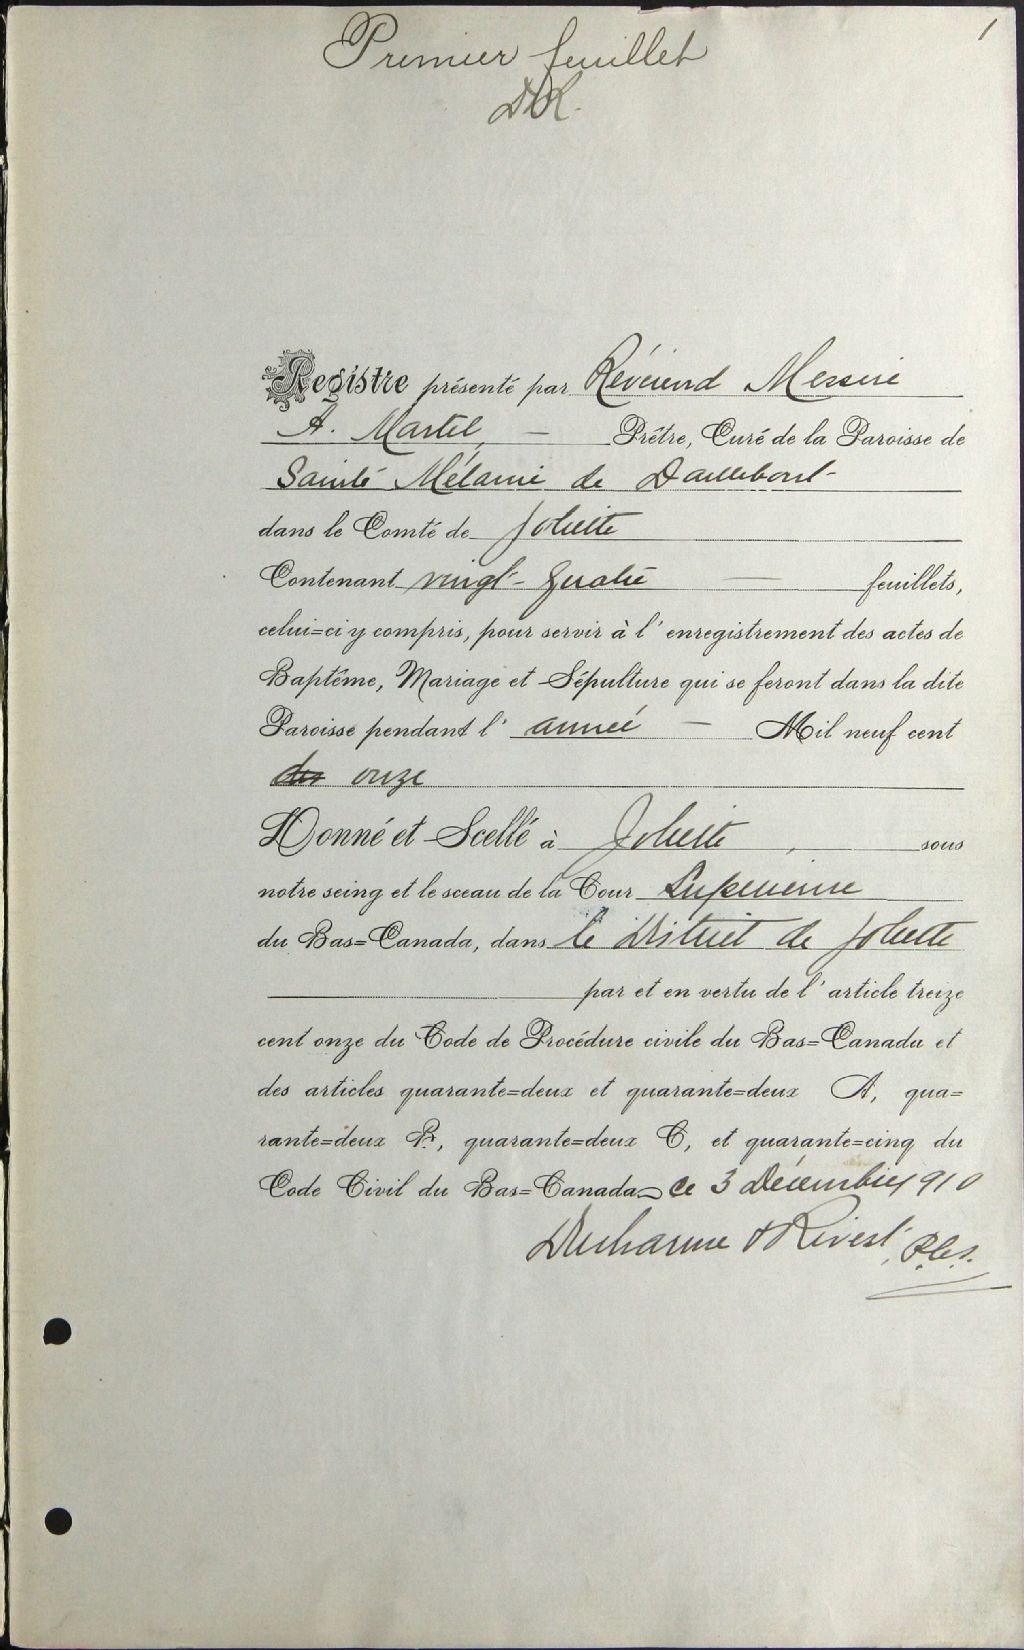 1
Premier feuillet
D&R.
Registre présenté par Révérend Messire
A. Martel, — Prêtre, Curé de la Paroisse de
Sainte Mélanie de Daillebout
dans le Comté de Joliette
Contenant vingt-quatre — feuillets,
celui=ci y compris, pour servir à l'enregistrement des actes de
Baptême, Mariage et Sépulture qui se feront dans la dite
Paroisse pendant l'année — Mil neuf cent
onze
Donné et Scellé à Joliette, sous
notre seing et le sceau de la Cour Supérieure
du Bas=Canada, dans le District de Joliette
par et en vertu de l'article treize
cent onze du Code de Procédure civile du Bas=Canada et
des articles quarante=deux et quarante=deux A, qua=
rante=deux B, quarante=deux C, et quarante=cinq du
Code Civil du Bas=Canada ce 3 Décembre 1910
Ducharme & Rivest, P.C.S.